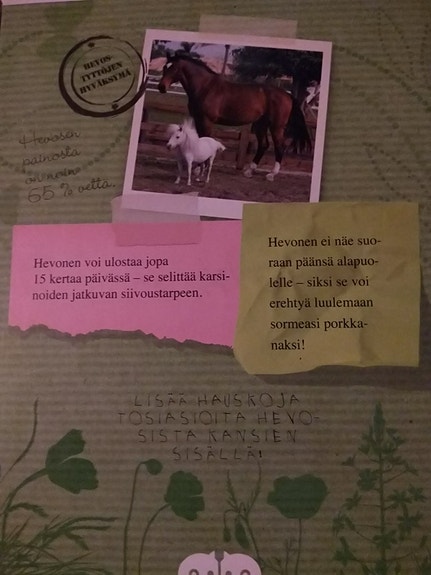 HEVOS-
TYTTÖJEN
HYVÄKSYMÄ
Hevosen
painosta
on noin
65 % vettä.
Hevonen voi ulostaa jopa
15 kertaa päivässä – se selittää karsi-
noiden jatkuvan siivoustarpeen.
Hevonen ei näe suo-
raan päänsä alapuo-
lelle – siksi se voi
erehtyä luulemaan
sormeasi porkka-
naksi!
LISÄÄ HAUSKOJA
TOSIASIOITA HEVO-
SISTA KANSIEN
SISÄLLÄ!